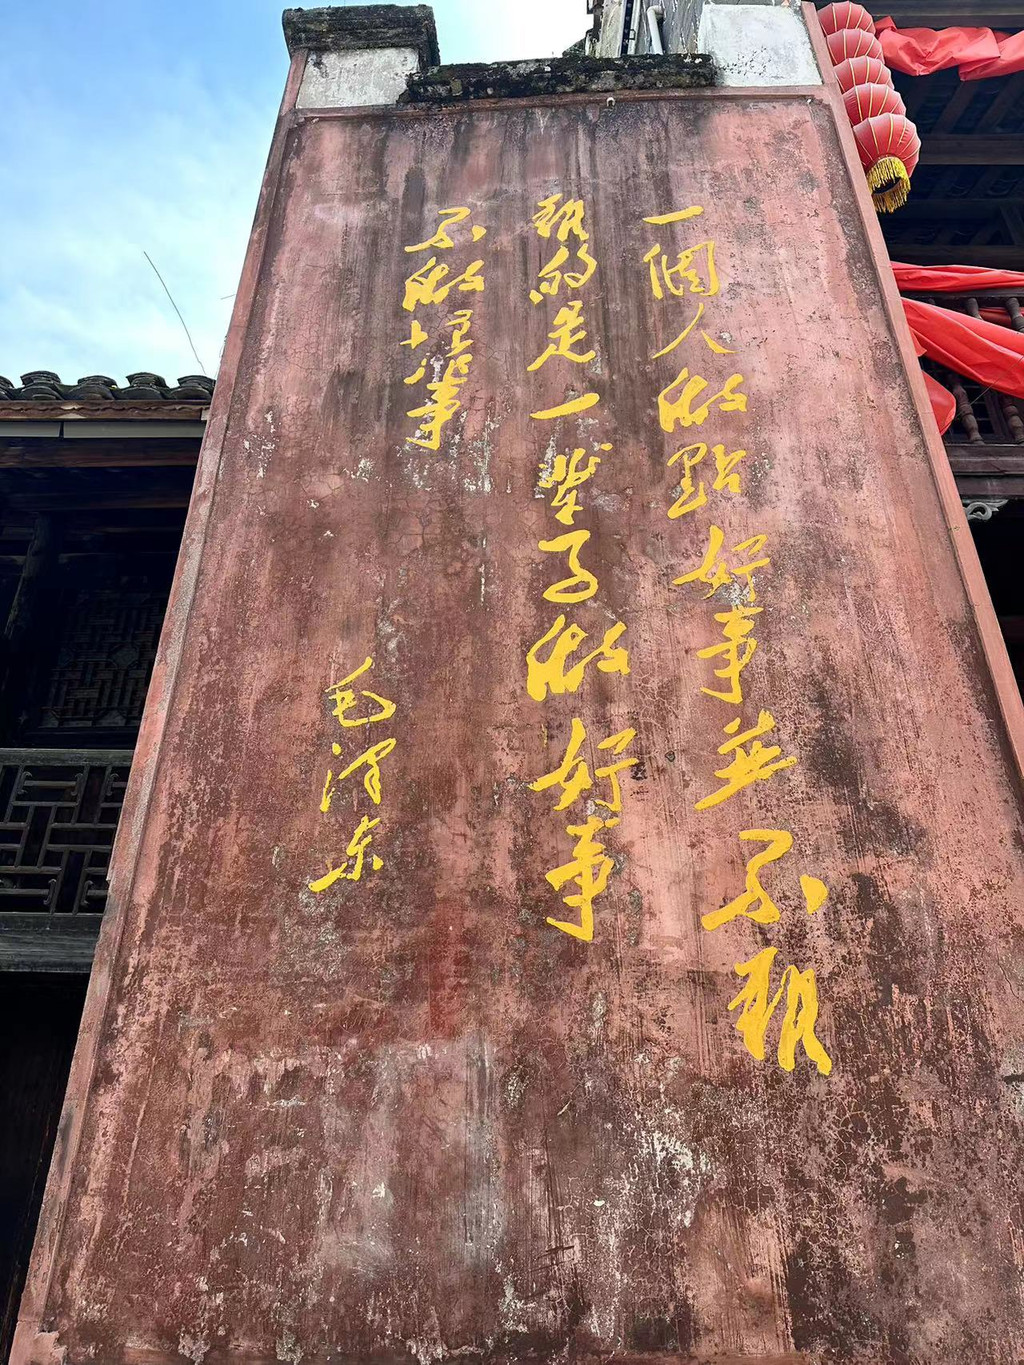 一個人做點好事並不難
難的是一輩子做好事
不做壞事
毛澤東